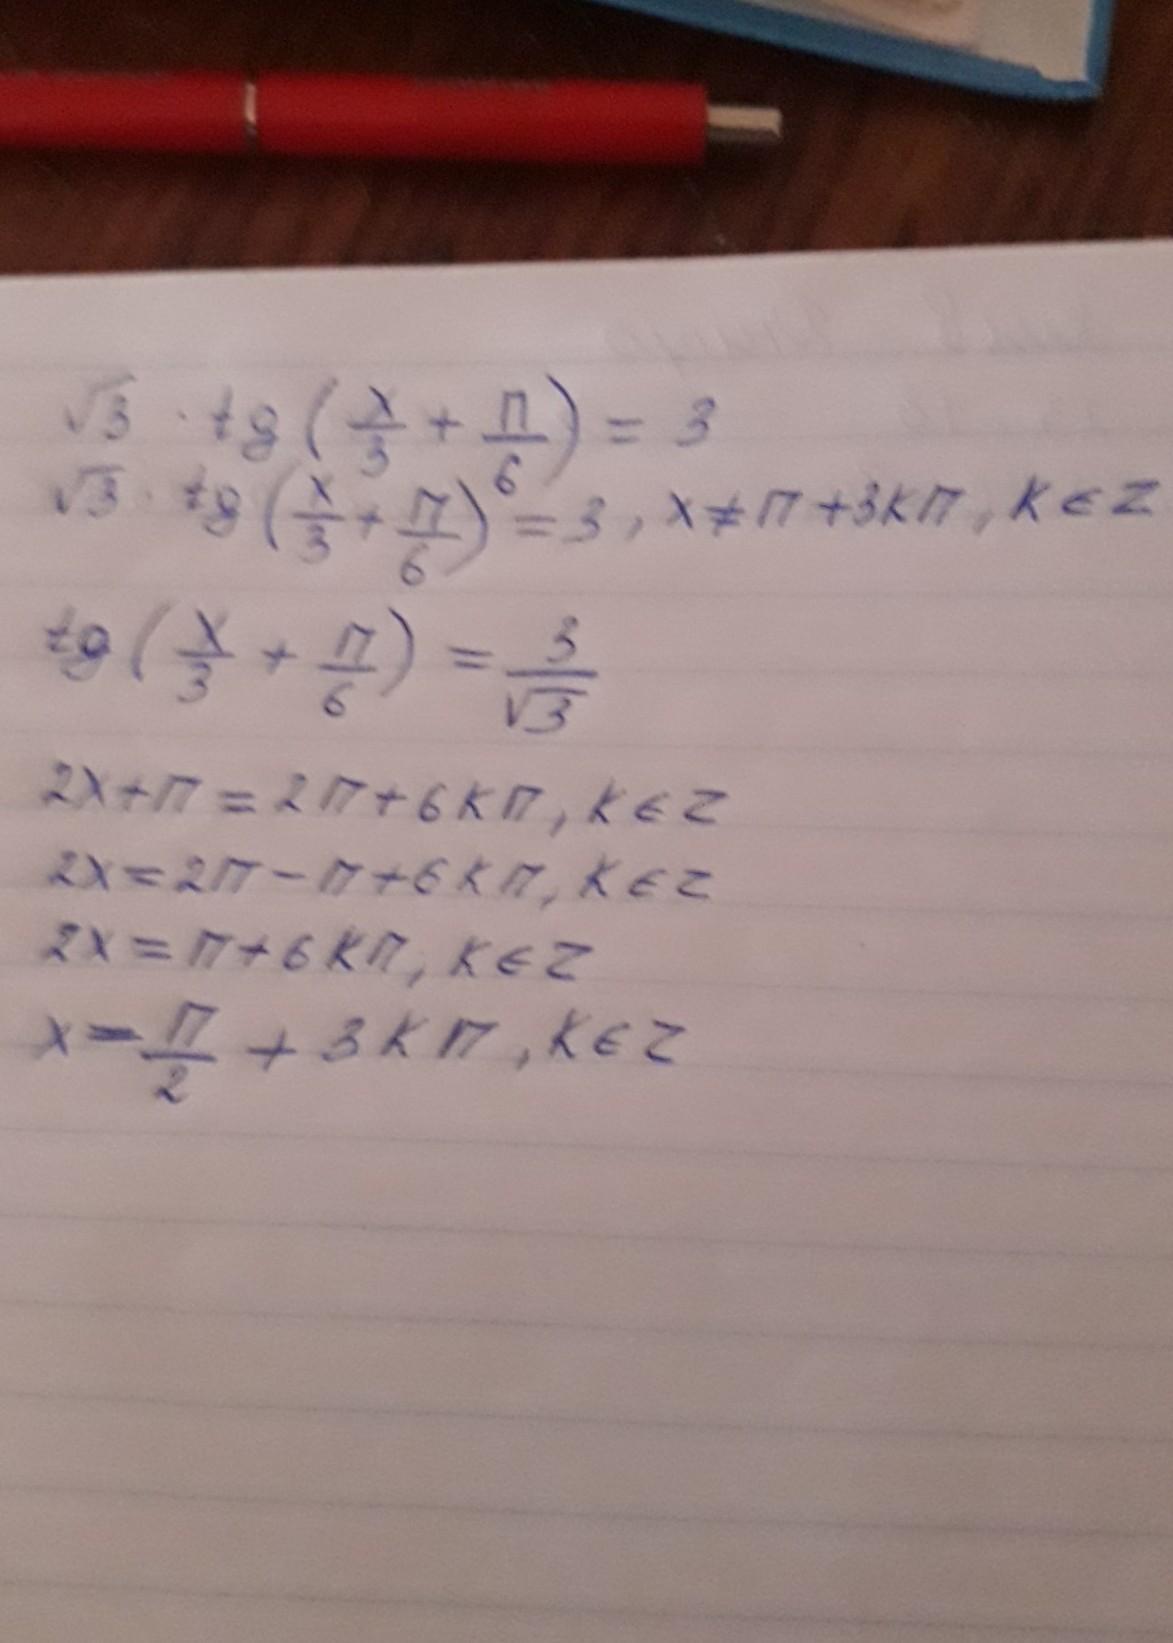 √3 · tg(x/3 + π/6) = 3
√3 · tg(x/3 + π/6) = 3, x ≠ π + 3kπ, k ∈ Z
tg(x/3 + π/6) = 3/√3
2x + π = 2π + 6kπ, k ∈ Z
2x = 2π - π + 6kπ, k ∈ Z
2x = π + 6kπ, k ∈ Z
x = π/2 + 3kπ, k ∈ Z